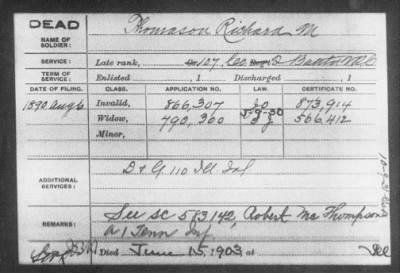 DEAD
NAME OF SOLDIER:
Thomason Richard M
SERVICE:
Late rank, Co. 127, Co D
TERM OF SERVICE:
Enlisted , 1 Discharged , 1
DATE OF FILING. CLASS. APPLICATION NO. LAW. CERTIFICATE NO.
1890 Aug 6 Invalid, 866,307 873,914
Widow, 790,360 566,412
Minor,
ADDITIONAL SERVICES:
D & G 110 Ill Inf
REMARKS:
See SC 583142, Robert Mc Thompson
A 1 Tenn Inf
Died June 15, 1903, at Ill